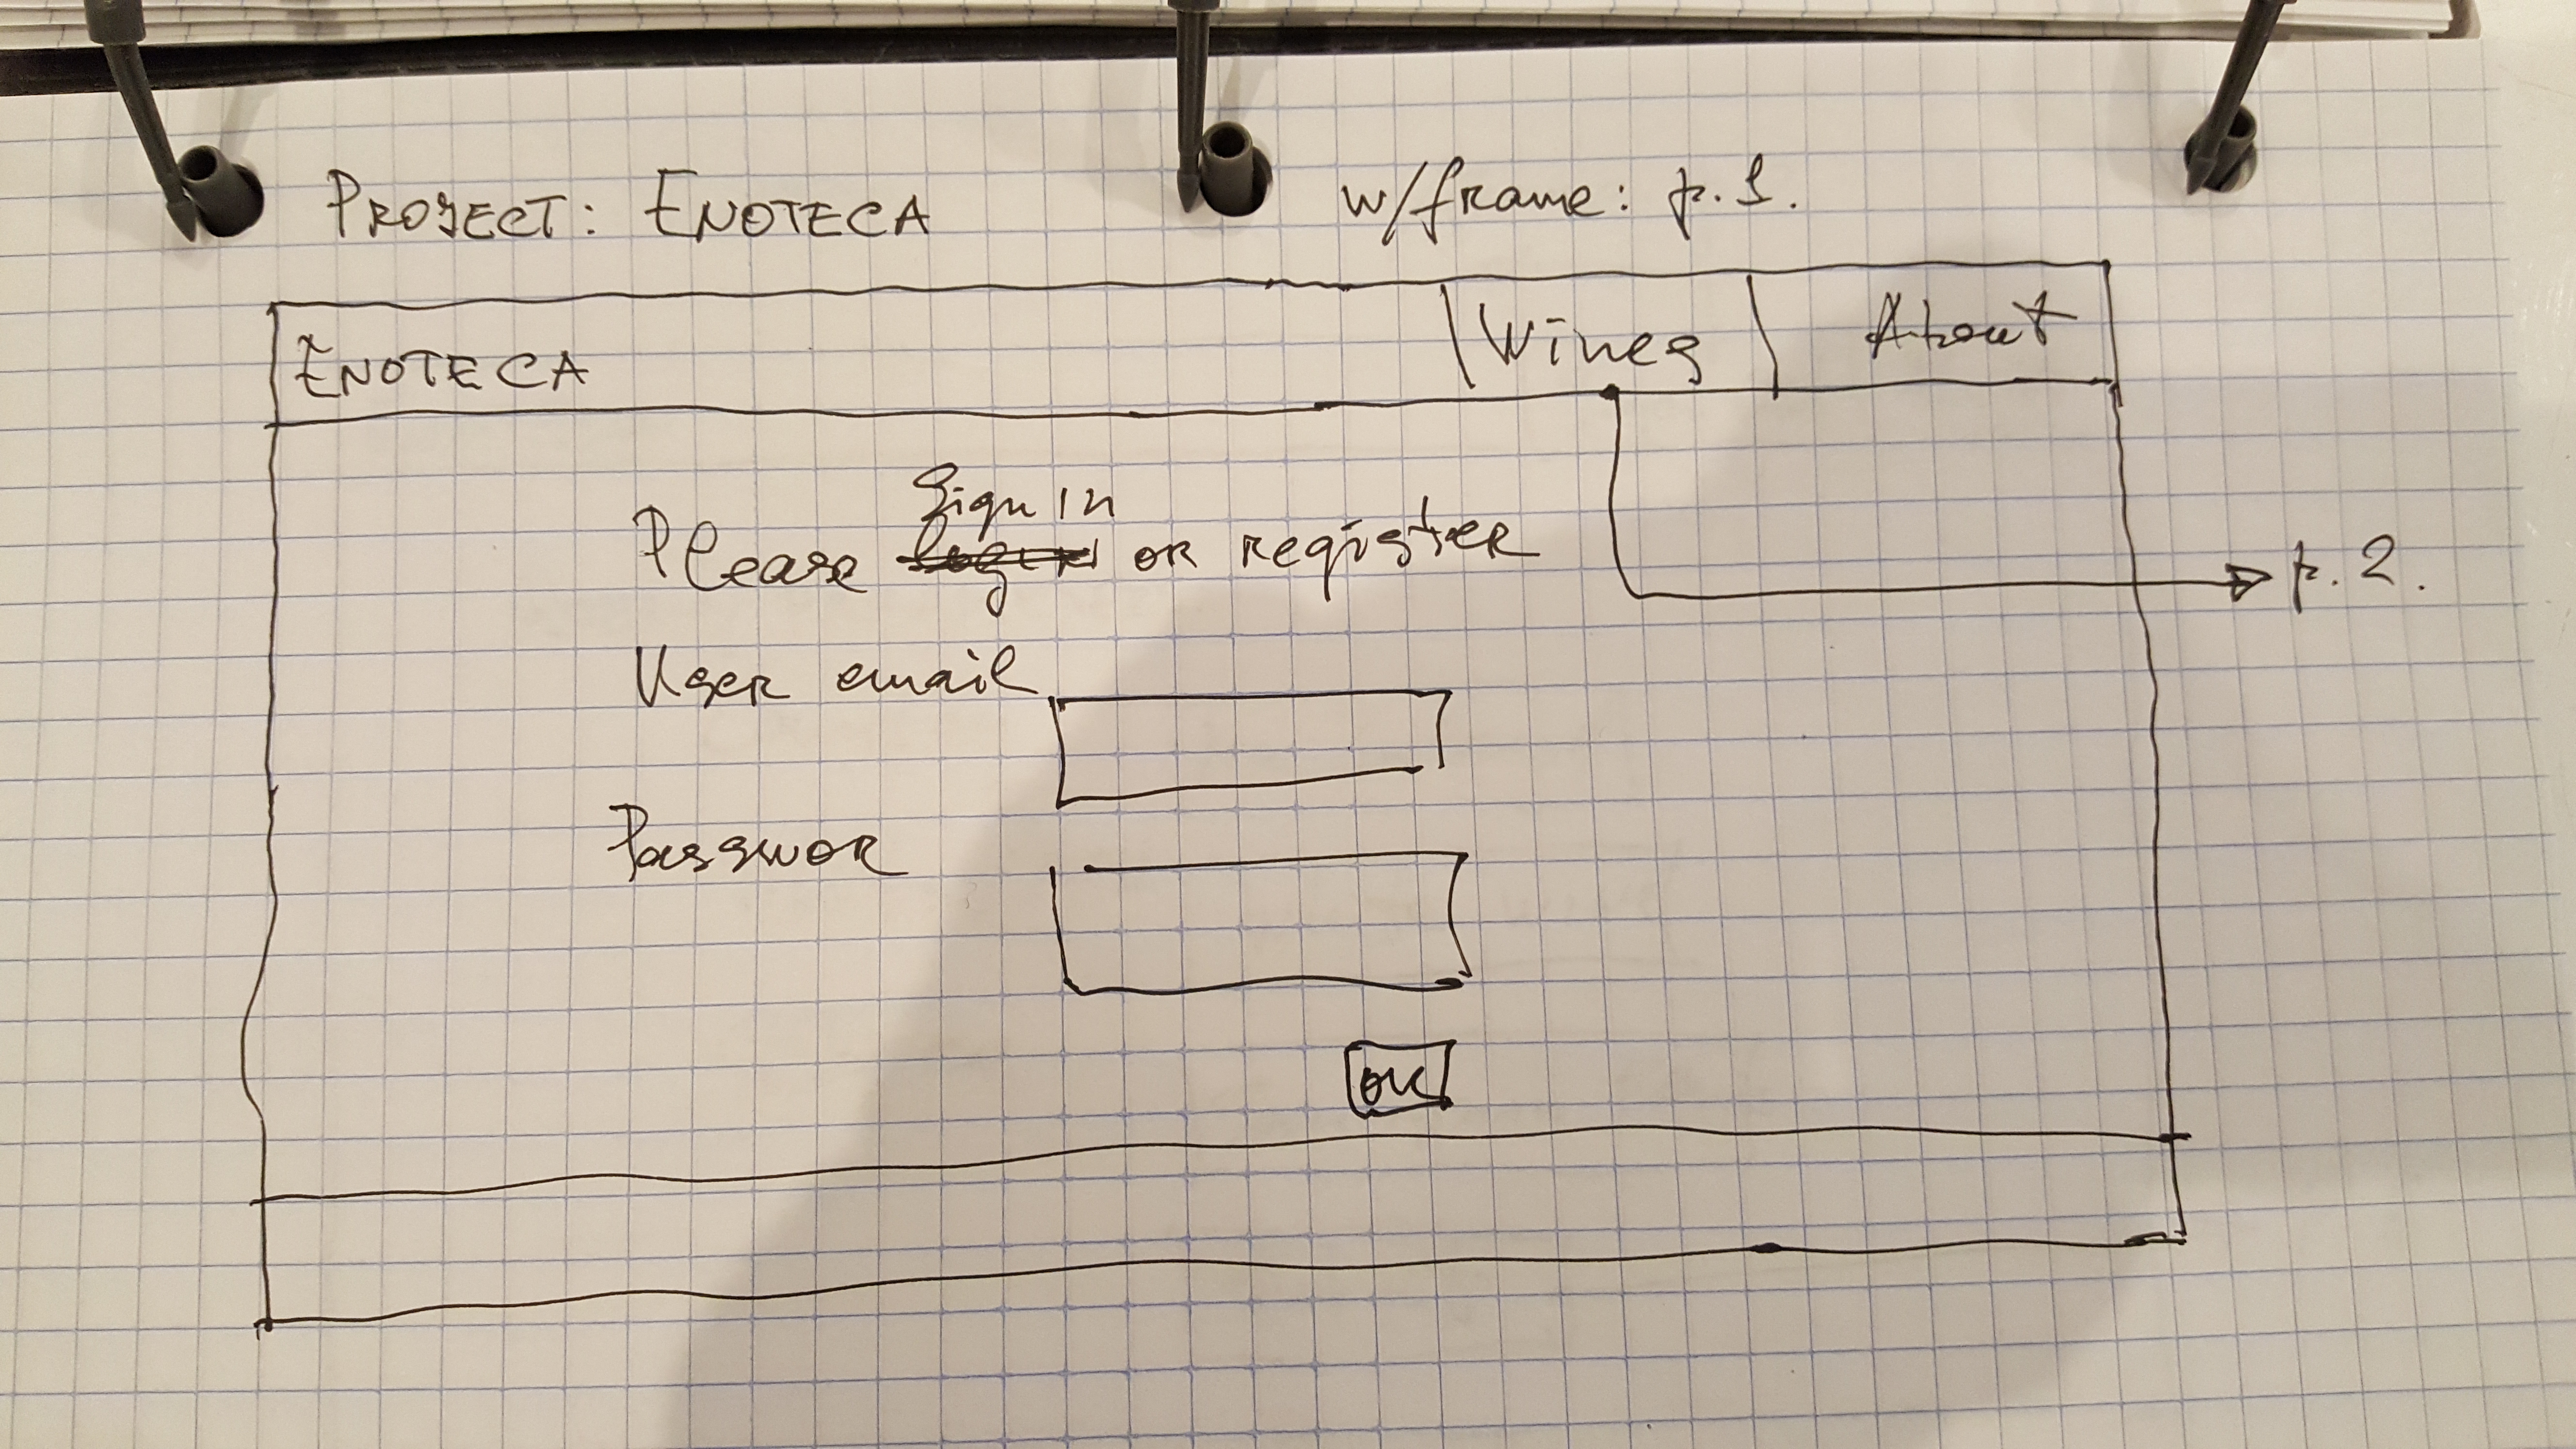 PROJECT: ENOTECA
w/frame: p. 1.
ENOTECA
Wines
About
Sign in
Please login or register
p. 2.
User email
Passwor
OK